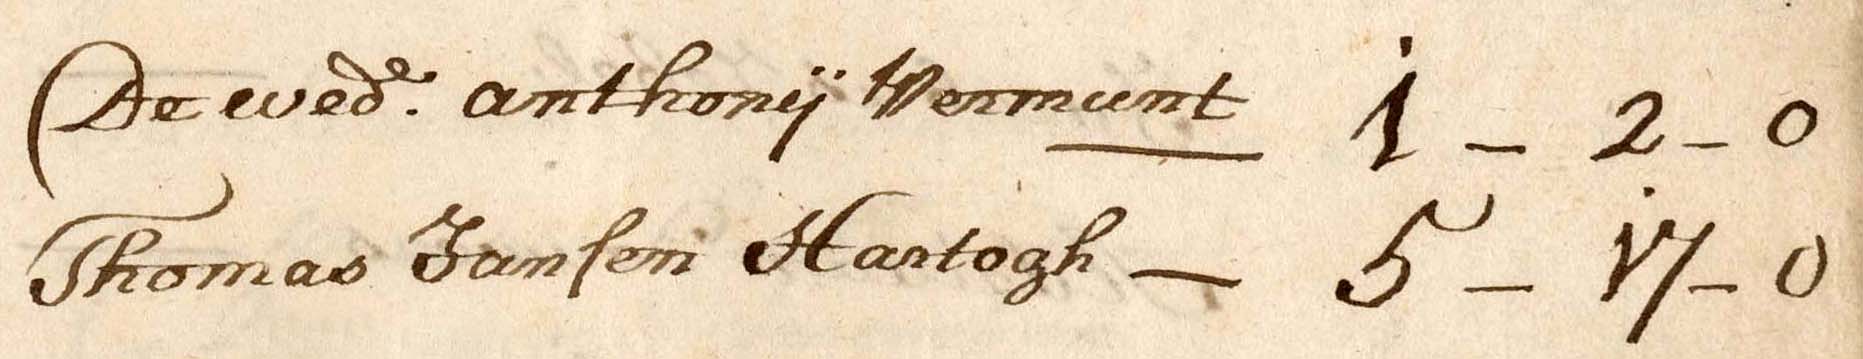 De wed.e anthonij Vermunt 1 - 2 - 0
Thomas Jansen Hartogh - 5 - 17 - 0